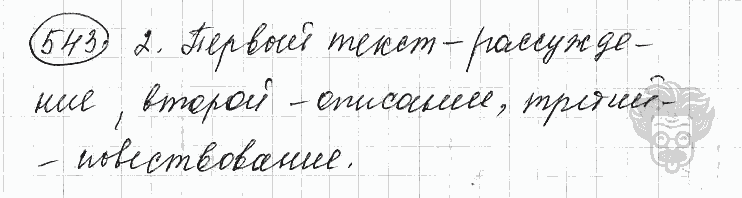 543. 2. Первый текст – рассужде-
ние, второй – описание, третий –
– повествование.